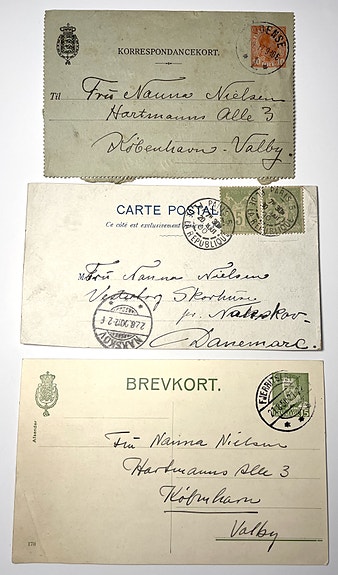 KORRESPONDANCEKORT.
Til Fru Nanna Nielsen
Hartmanns Alle 3
København - Valby.
CARTE POSTALE
Ce côté est exclusivement
Fru Nanna Nielsen
Skovhuse
pr. Nakskov
Danemark.
NAKSKOV
BREVKORT.
Afsender
Fru Nanna Nielsen
Hartmanns Alle 3
København
Valby
178